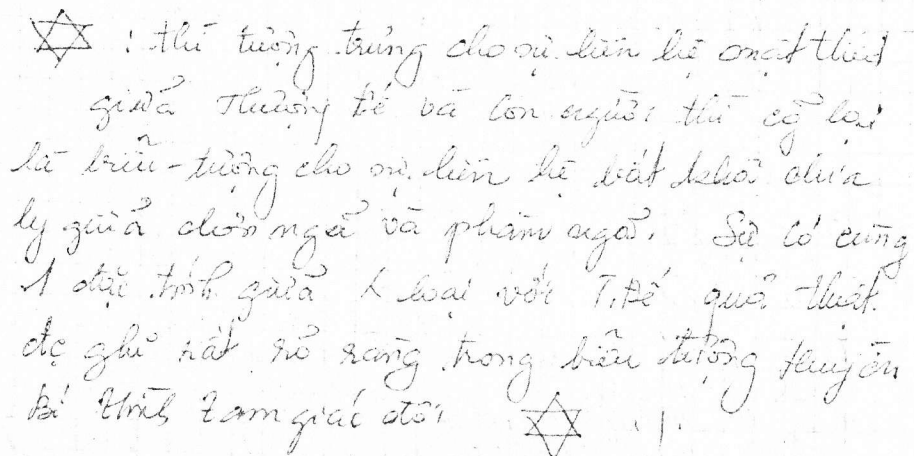 ✡ : thì tượng trưng cho sự liên hệ mật thiết
giữa Thượng Đế và con người thì cỗ loại
là biểu-tượng cho sự liên hệ bất khả phân
ly giữa chơn ngã và phàm ngã. Sự có cùng
1 đặc tính giữa loại với T.Đế quả thật
đc ghi rất rỏ ràng trong biểu tượng Huyền
Bí Hình tam giác đôi ✡ . | .